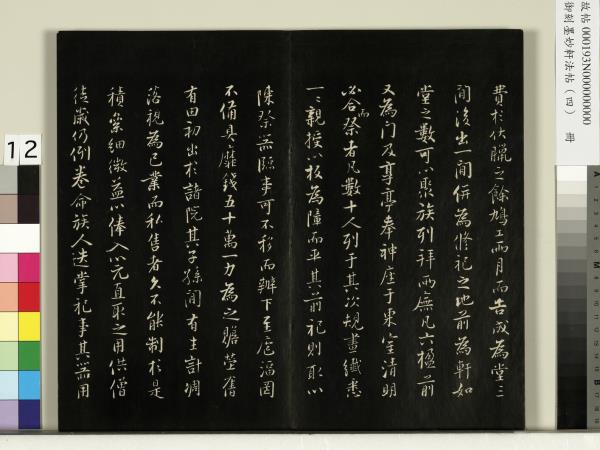 費於伏臘之餘鳩工兩月而告成為堂三
間後出一間併為修祀之地前為軒如
堂之數可以聚族列拜兩廡凡六楹前
又為門及享亭奉神座于東室清明
必合祭者凡數十人列于其次規畫纖悉
而
一一親授以板為障而平其前祀則取以
陳祭器臨事可不移而辦下至庖湢罔
不備具靡錢五十萬一力為之贍塋舊
有田初出於諸院其子孫間有主計凋
落視為己業而私售者久不能制於是
積累細微益以俸入以元直取之用供僧
徒歲仍例卷命族人迭掌祀事其器用
故帖 000193N000000000
御刻墨妙軒法帖（四） 冊
12